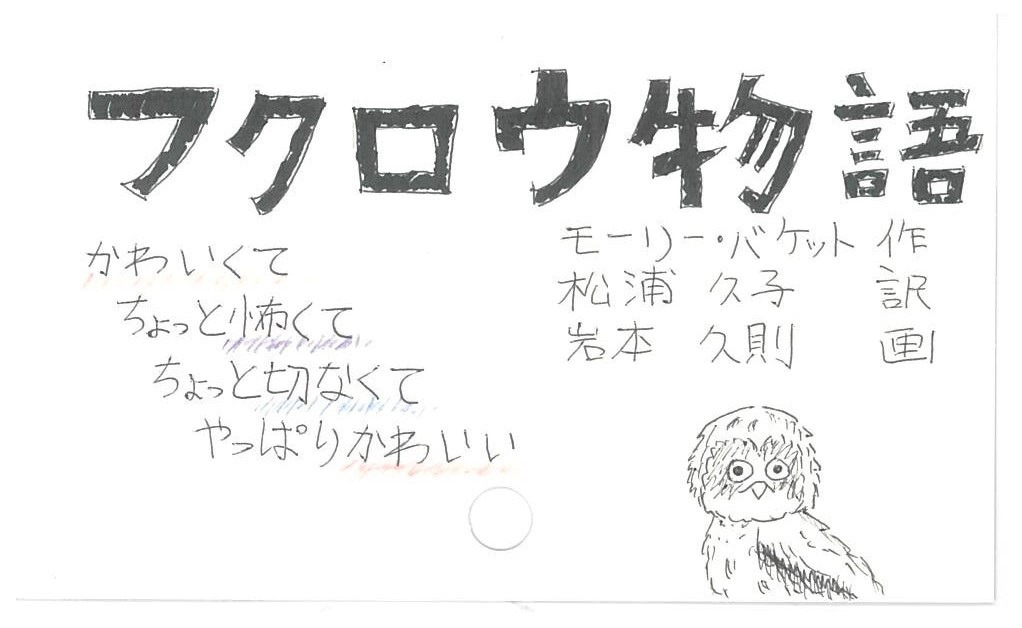 フクロウ物語
モーリー・バケット 作
松浦 久子 訳
岩本 久則 画
かわいくて
ちょっと怖くて
ちょっと切なくて
やっぱりかわいい